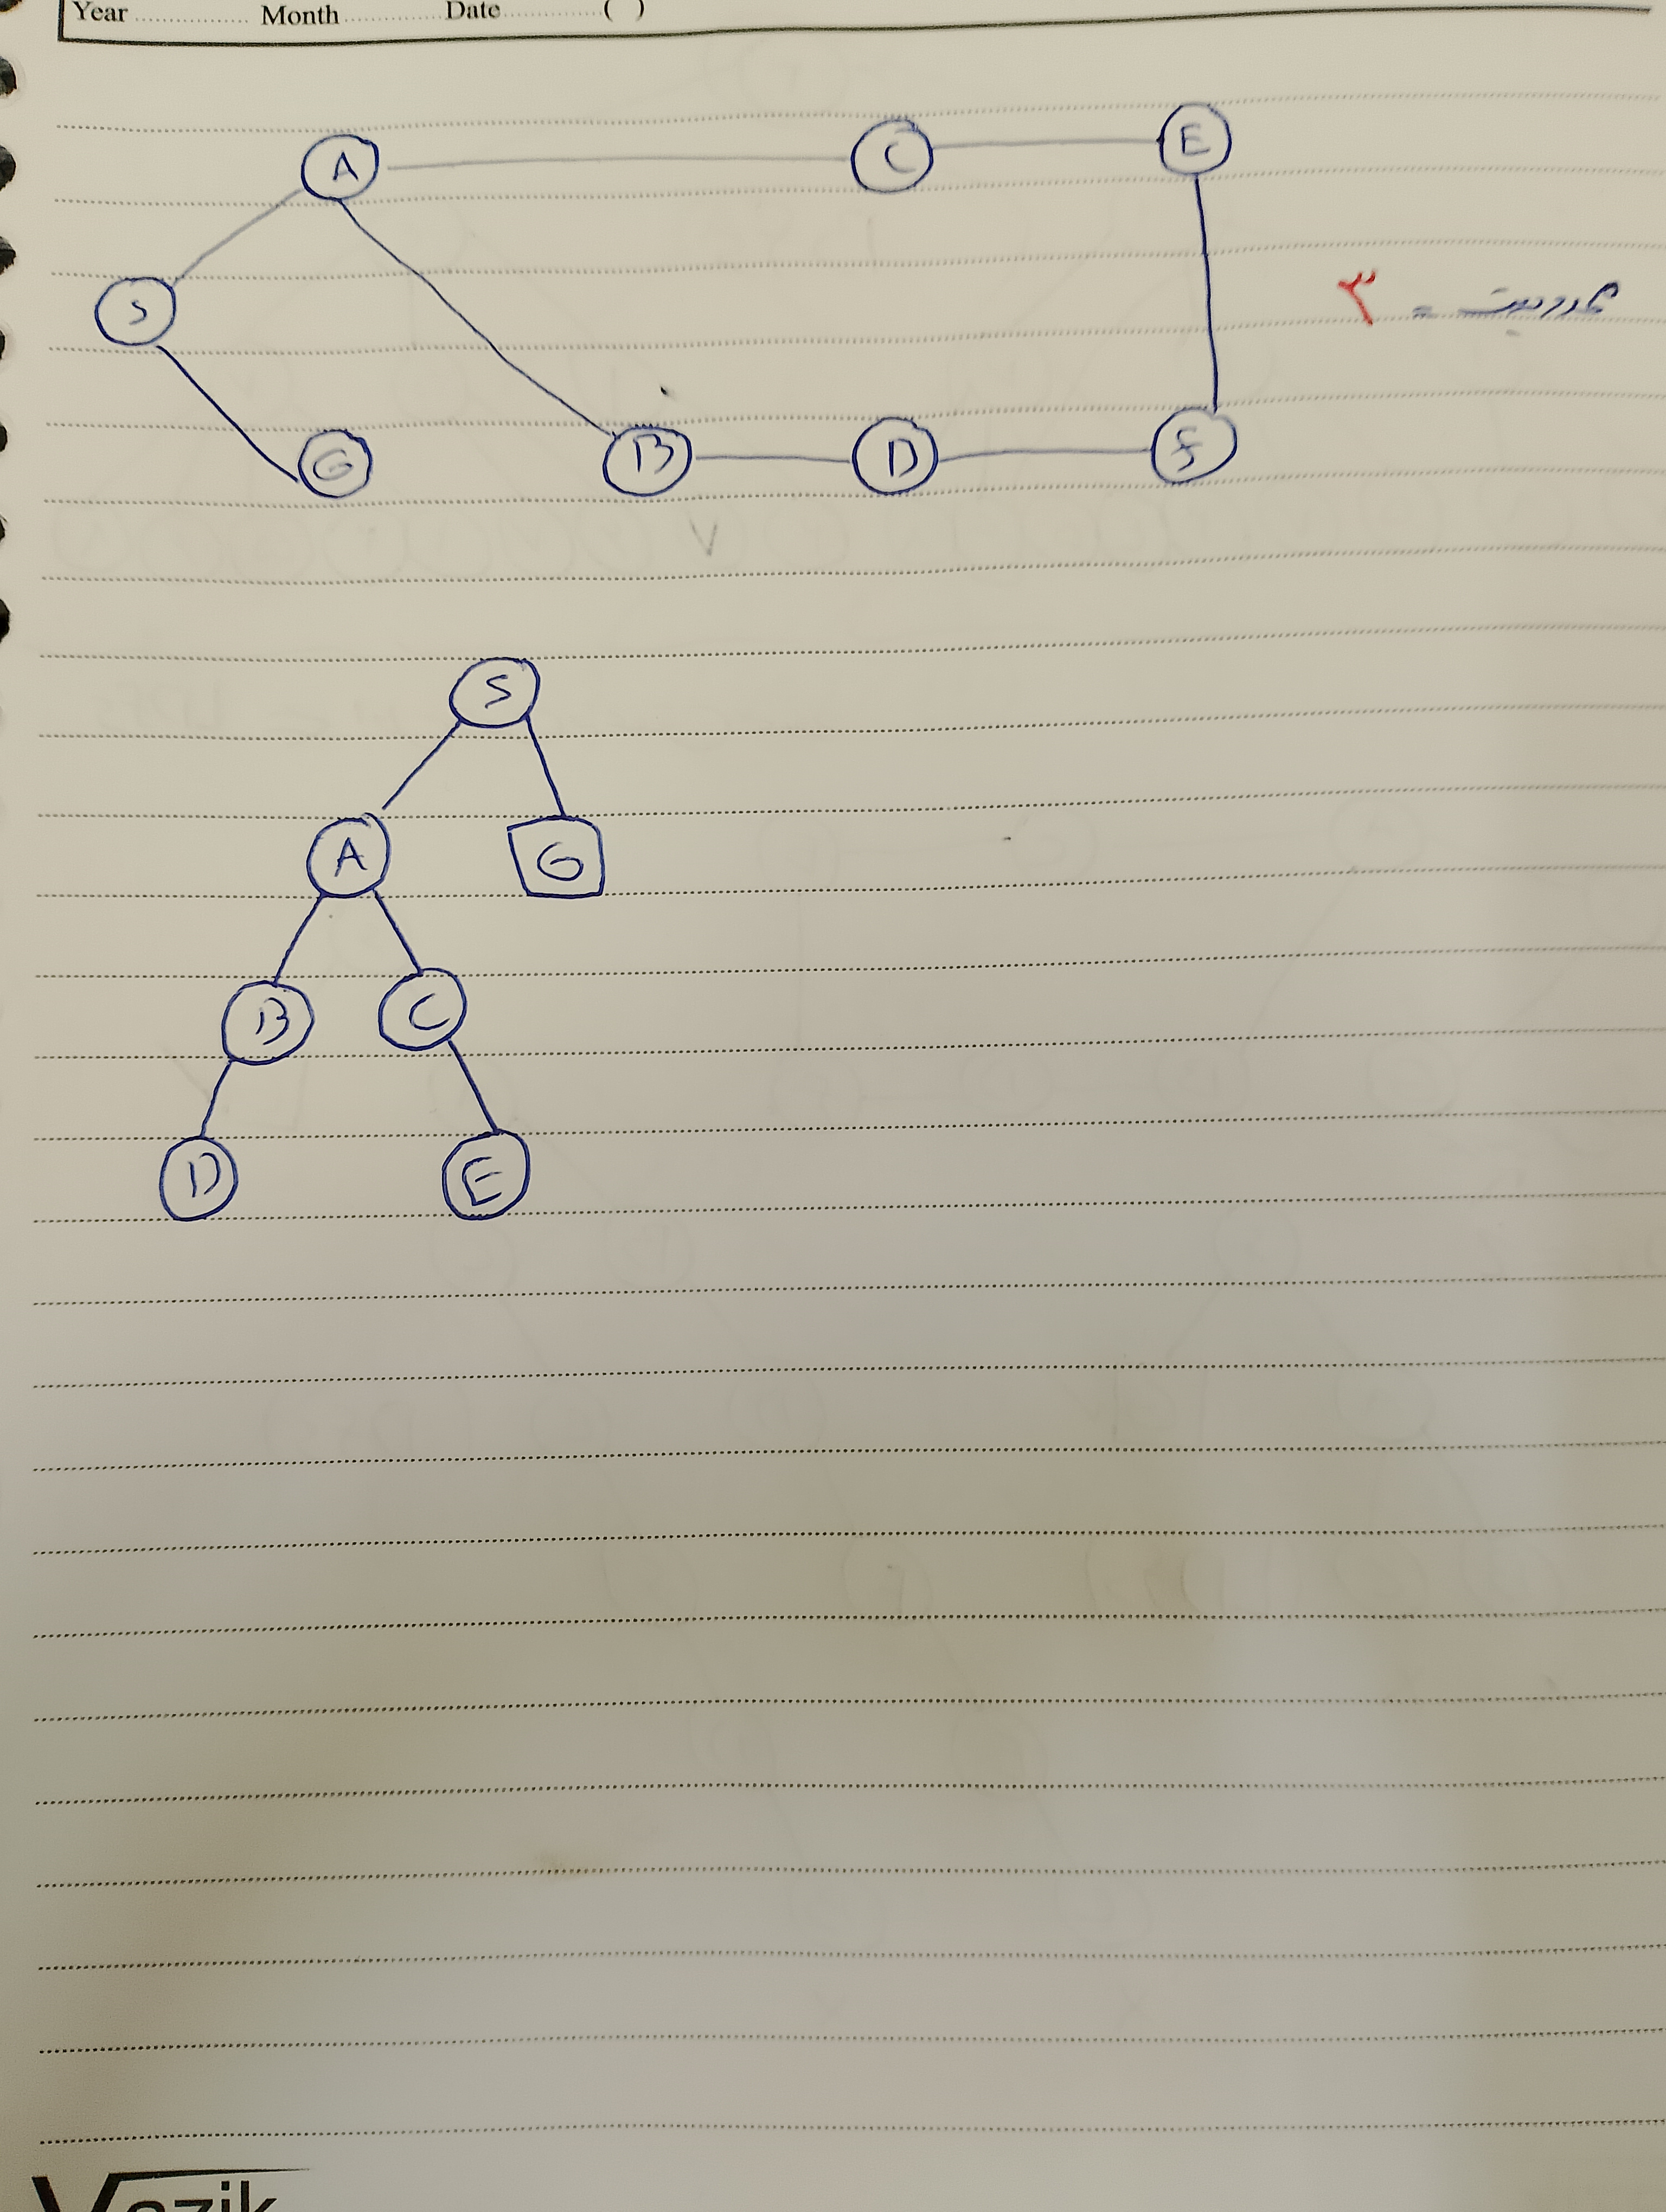 Year ............... Month ............... Date ............... ( )
A C E
S
محدودیت = ۳
G B D F
S
A G
B C
D E
Vazik